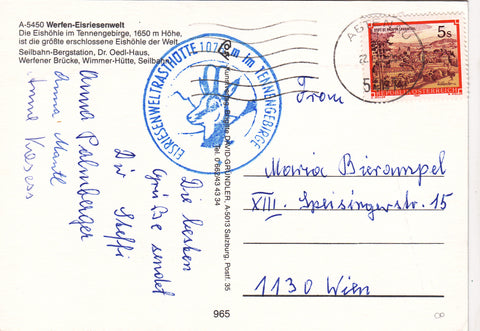 A-5450 Werfen-Eisriesenwelt
Die Eishöhle im Tennengebirge, 1650 m Höhe,
ist die größte erschlossene Eishöhle der Welt.
Seilbahn-Bergstation, Dr. Oedl-Haus,
Werfener Brücke, Wimmer-Hütte, Seilbahn
EISRIESENWELTRASTHÜTTE 107 m im TENNENGEBIRGE
5s
REPUBLIK ÖSTERREICH
From
Die besten
Grüße sendet
Dir Steffi
Anna Palmberger
Anna Mantl
DAVID-GRÜNDLER, A-5013 Salzburg, Postf. 35
Tel. 0 662/43 43 34
Maria Bierampel
XIII. Speisingerstr. 15
1130 Wien
965